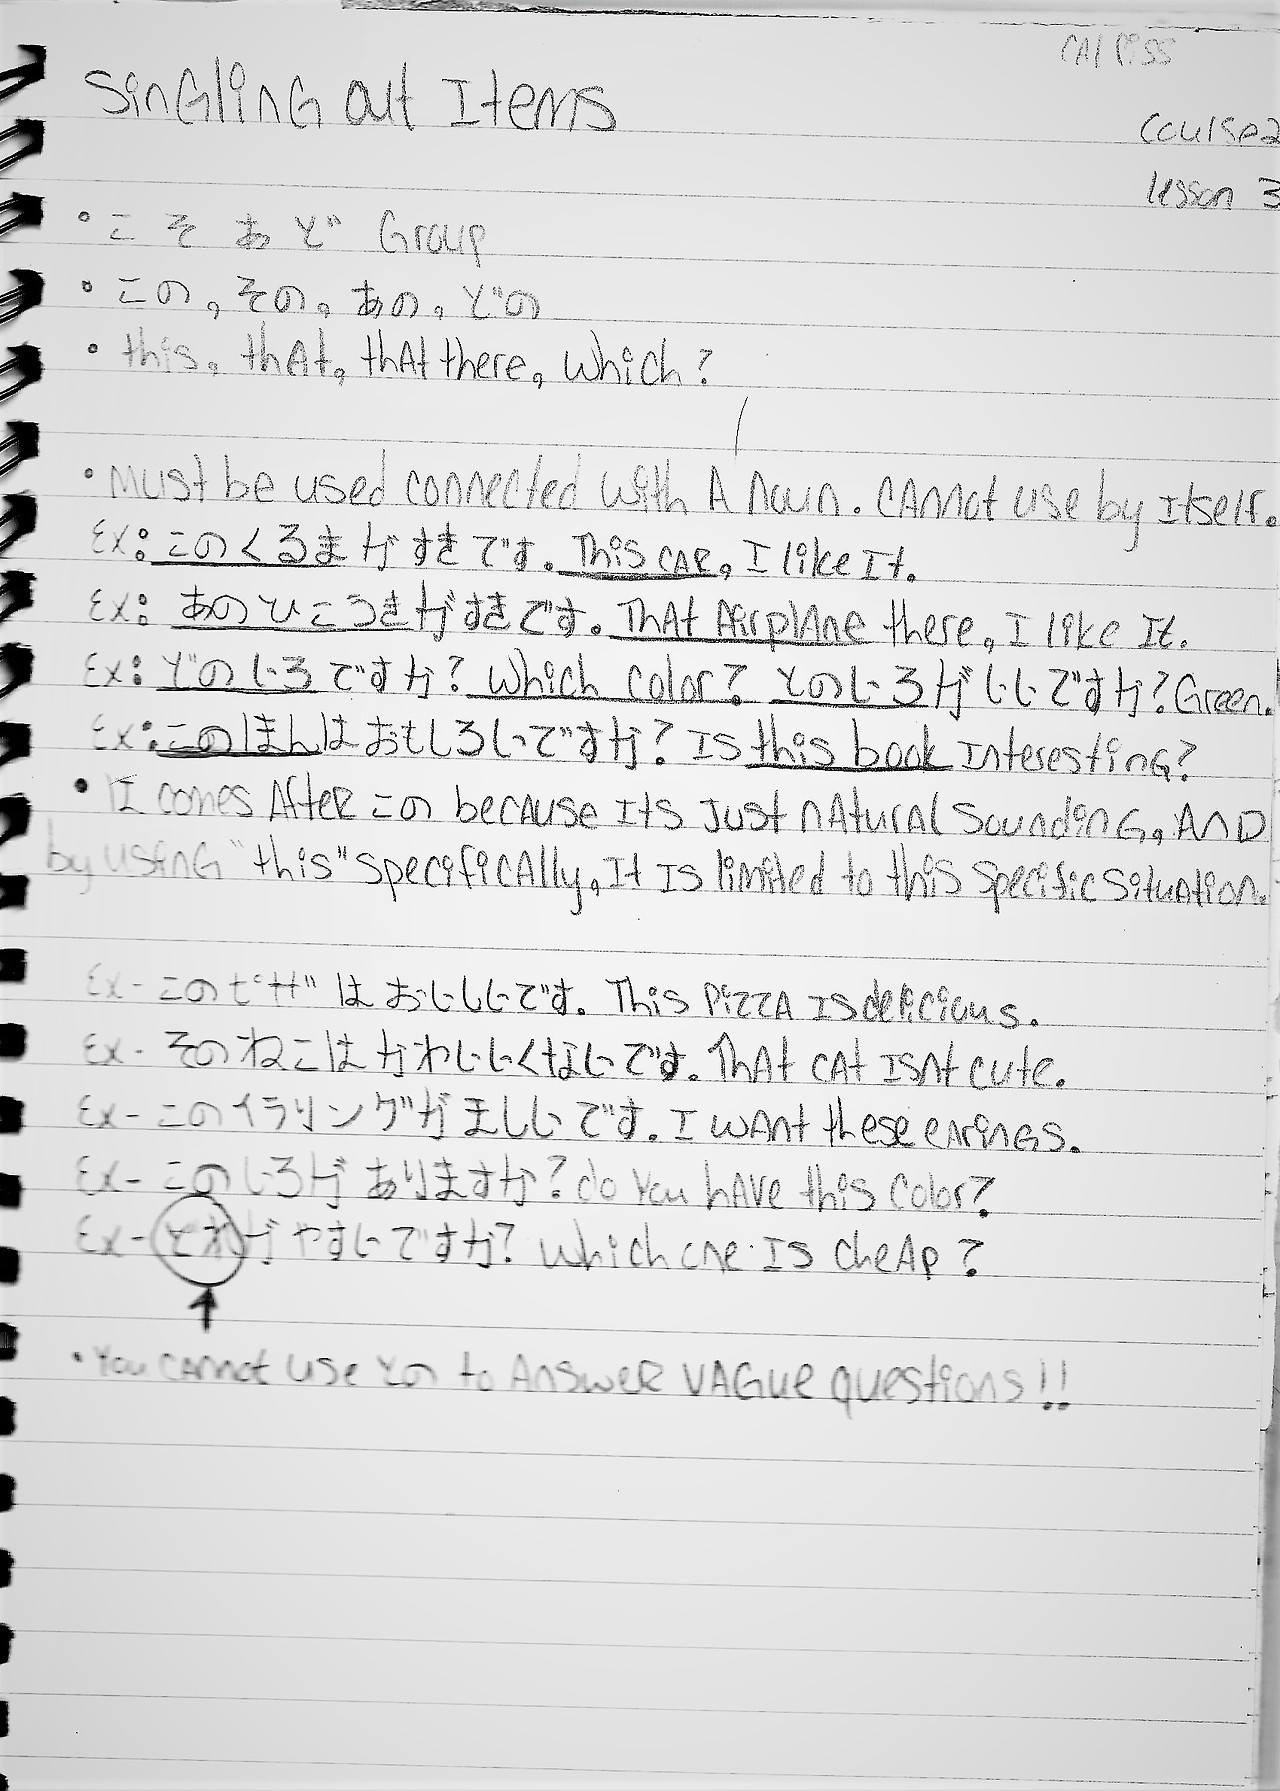 CAlPiss
SinGlinG out Items
Course2
lesson 3
• こ そ あ ど Group
• この, その, あの, どの
• this, thAt, thAt there, which?
• Must be used connected with A noun. CAnnot use by Itself.
Ex: このくるまがすきです. This CAR, I like It.
Ex: あのひこうきがすきです. ThAt AirplAne there, I like It.
Ex: どのいろですか? Which color? どのいろがいいですか? Green!
Ex: このほんはおもしろいですか? Is this book InterestinG?
• は comes After この because Its Just nAturAl SoundinG, AnD
by usinG "this" specificAlly, It Is limited to this specific situAtion.
Ex - このピザ はおいしいです. This PizzA Is delicious.
Ex - そのねこはかわいくないです. ThAt cAt Isnt cute.
Ex - このイラリングがましいです. I wAnt these eArinGs.
Ex - このいろがありますか? do you hAve this color?
Ex - どれがやすいですか? which one Is cheAp?
• You cAnnot use どの to AnsweR VAGue questions!!